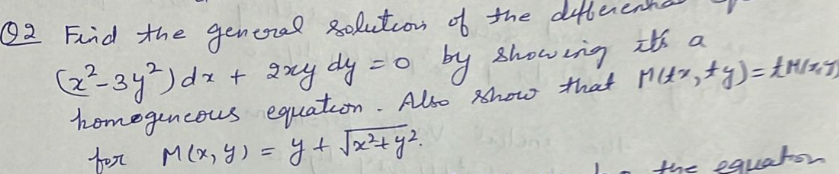 Q2 Find the general solution of the
(x²-3y²)dx + 2xy dy = 0 by showing its a
homogeneous equation. Also show that M(tx, ty) = tM(x,y)
for M(x, y) = y + √x²+y².
the equation